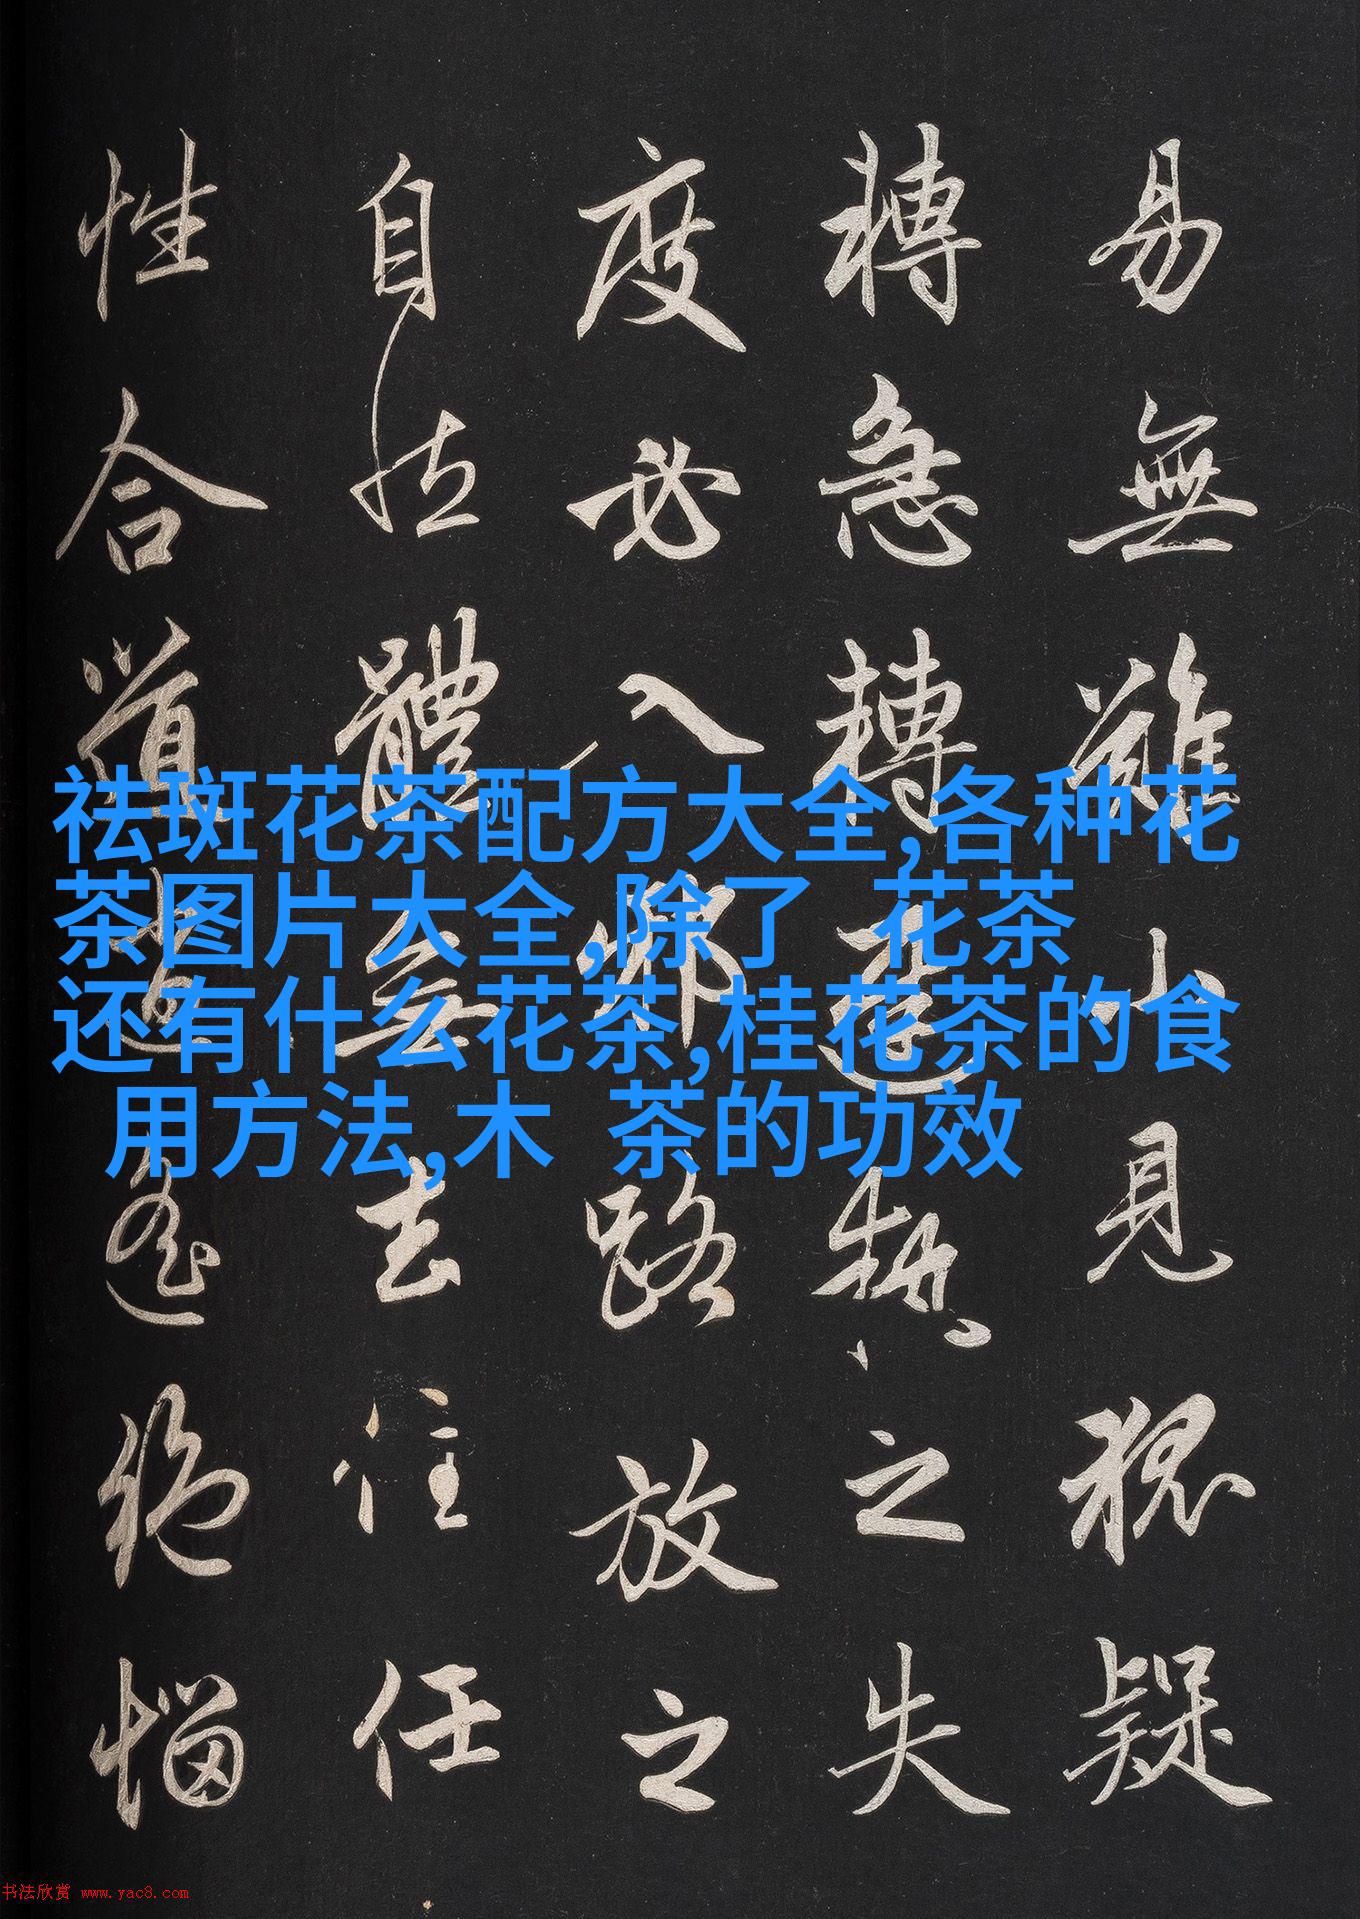 易無難小見狐疑
轉急轉遲執之失
度必入邪路放之
自然體无去住任
性合道逍遙絕惱
祛斑花茶配方大全,各种花
茶图片大全,除了 花茶
还有什么花茶,桂花茶的食
用方法,木 茶的功效
书法欣赏 www.yac8.com